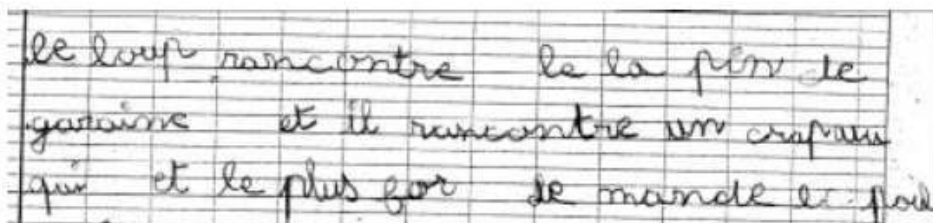 le loup rancontre le la pin de
garaine et il rancontre un crapau
qui et le plus for de mande le